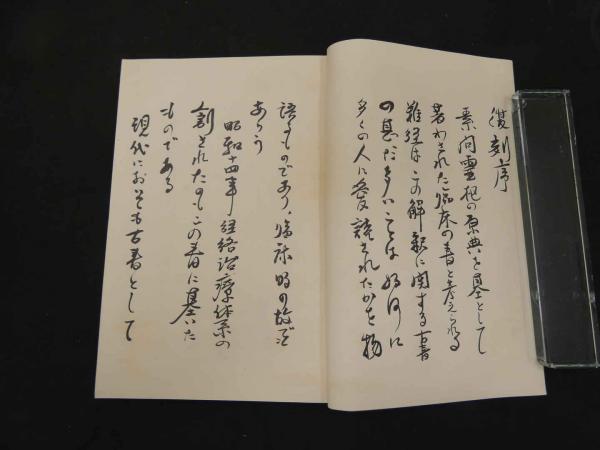 復刻序
素問霊枢の原典を基として
著わされた臨床の書と考えられる
難経はこの解釈に関する古書
の甚だ多いことは如何に
多くの人に愛読されたかを物
語るものであり、臨床時の故で
あろう
昭和十四年経絡治療体系の
創されたのもこの書に基いた
ものである
現代においても古書として